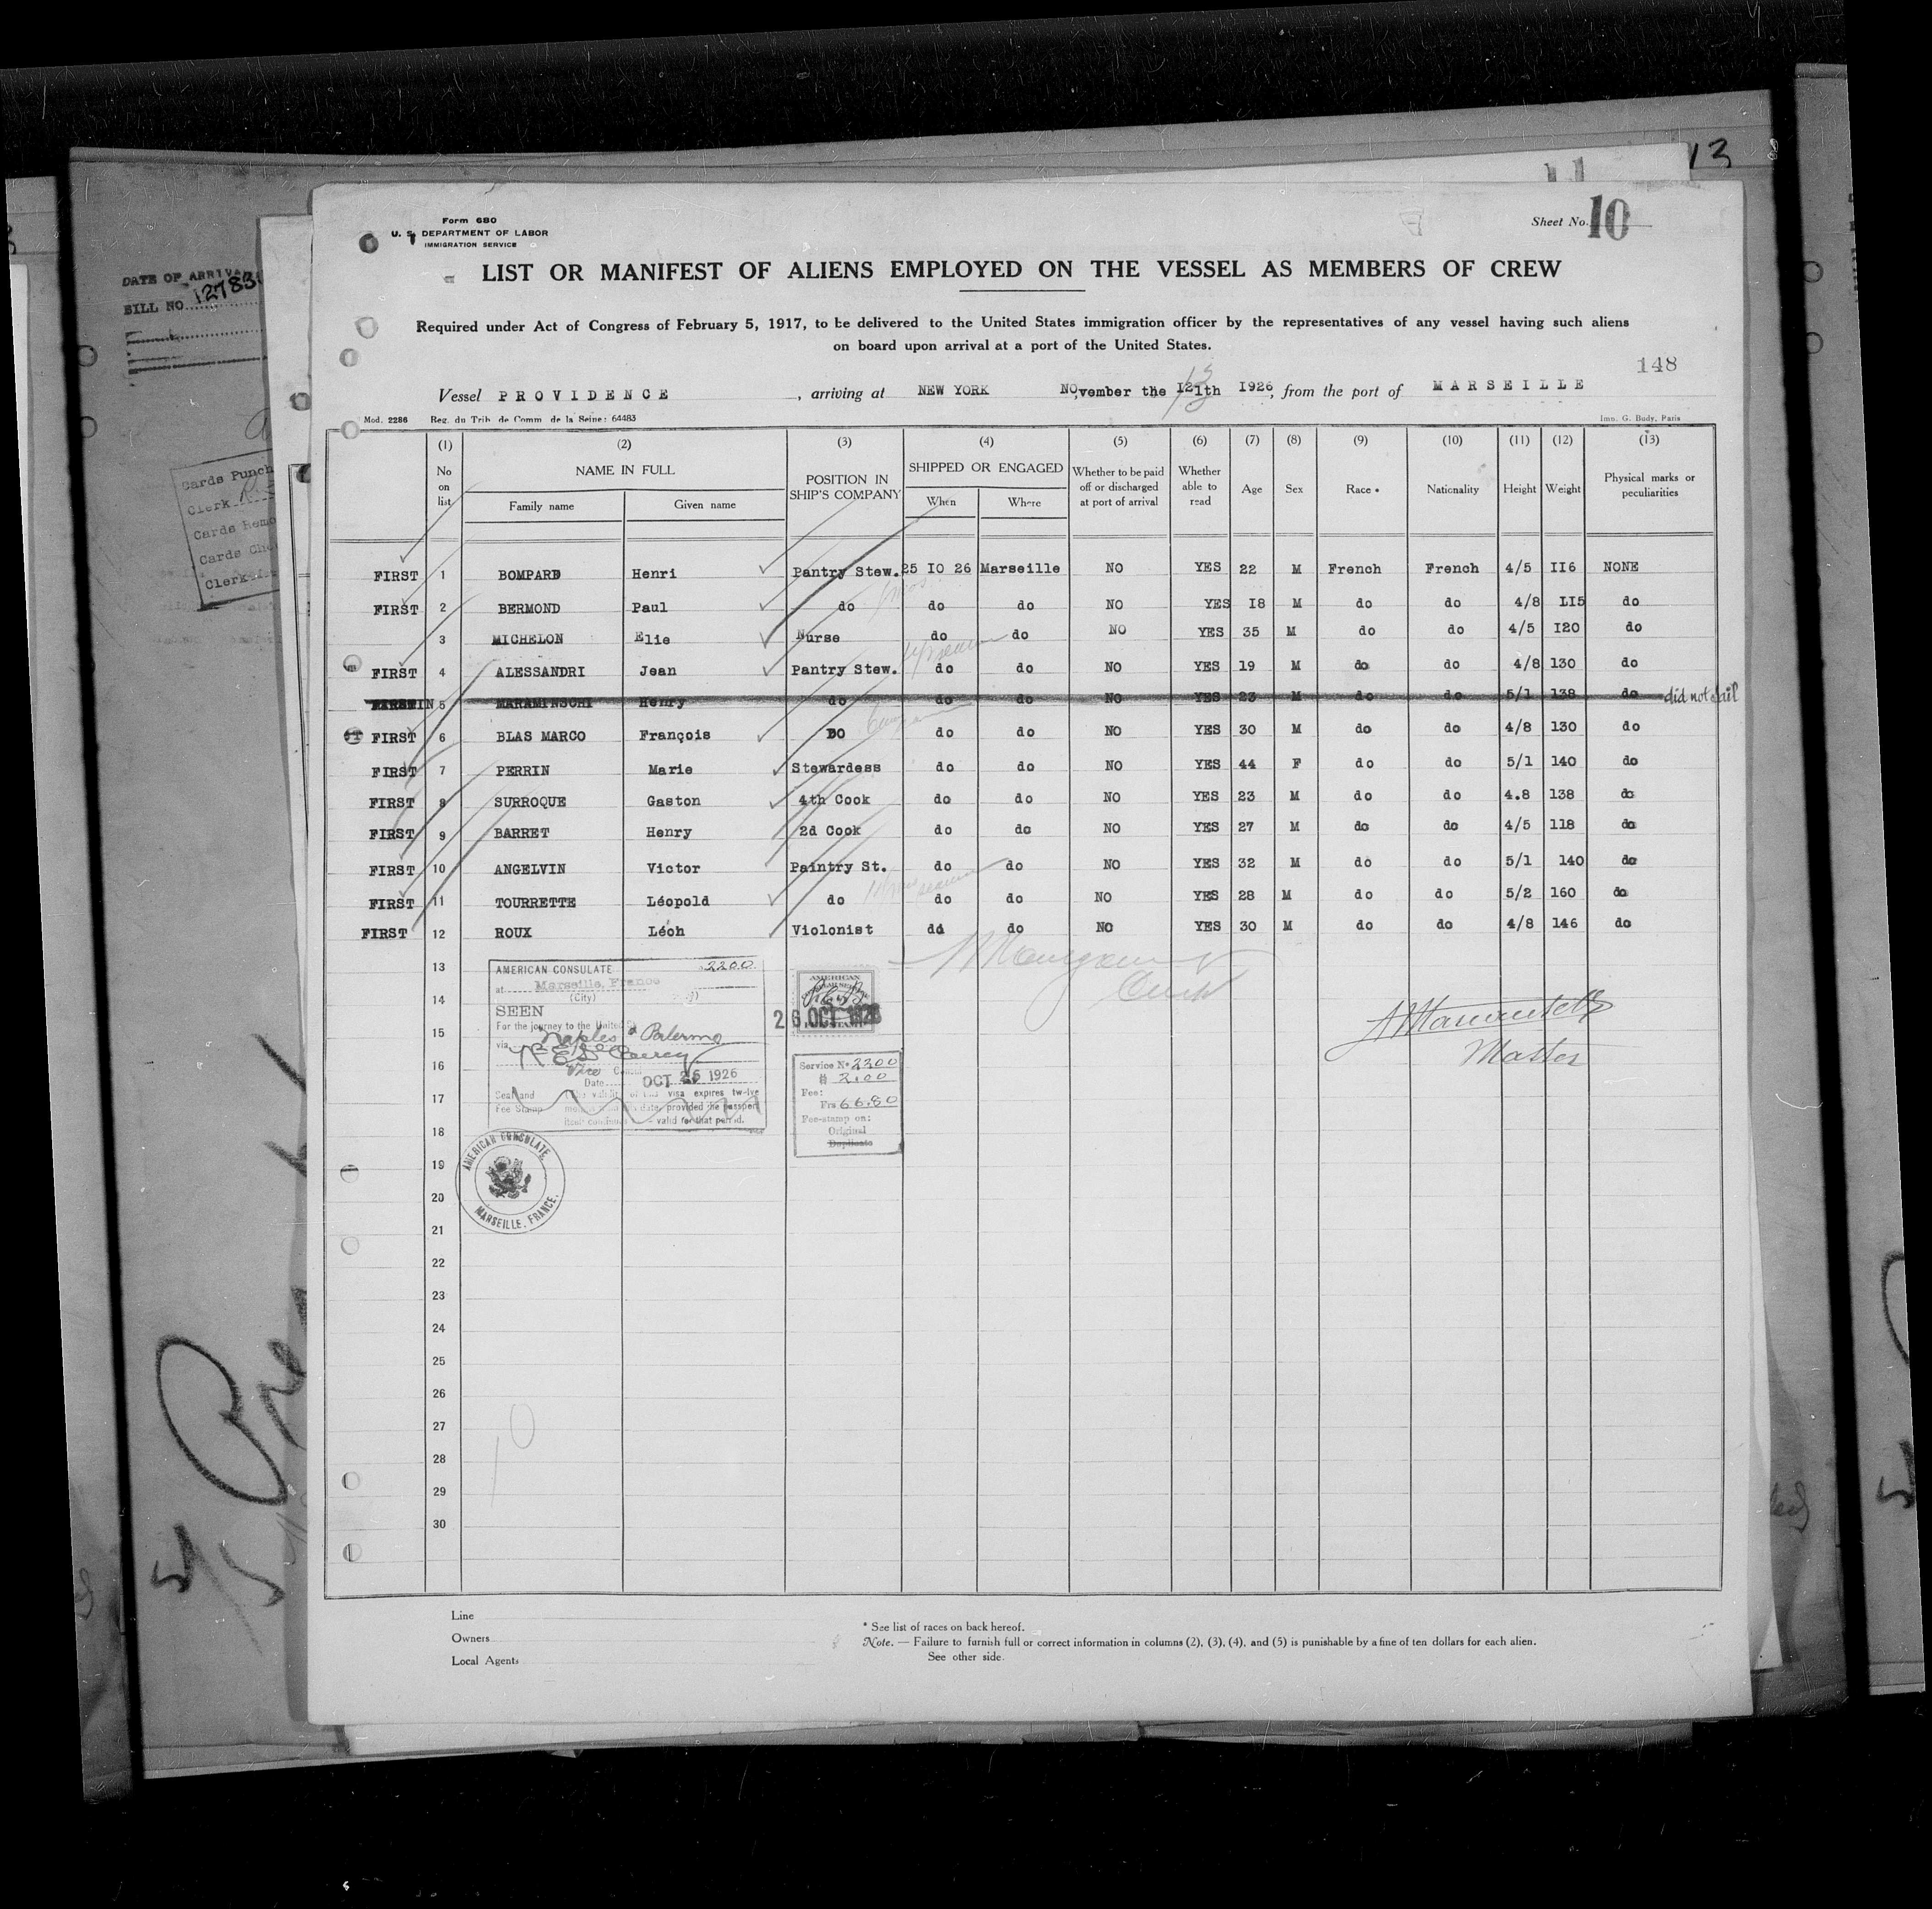 13
Form 680
U. S. DEPARTMENT OF LABOR
IMMIGRATION SERVICE
Sheet No. 10
DATE OF ARRIVA
BILL NO. 12783
LIST OR MANIFEST OF ALIENS EMPLOYED ON THE VESSEL AS MEMBERS OF CREW
Required under Act of Congress of February 5, 1917, to be delivered to the United States immigration officer by the representatives of any vessel having such aliens
on board upon arrival at a port of the United States.
148
Vessel PROVIDENCE, arriving at NEW YORK NOvember the 12 1th 1926, from the port of MARSEILLE
13
Mod. 2286 Reg. du Trib. de Comm. de la Seine: 64483
Imp. G. Body, Paris
Cards Punch
Clerk
Cards Remo
Cards Che
Clerk
(1) (2) (3) (4) (5) (6) (7) (8) (9) (10) (11) (12) (13)
No on list NAME IN FULL POSITION IN SHIP'S COMPANY SHIPPED OR ENGAGED Whether to be paid off or discharged at port of arrival Whether able to read Age Sex Race * Nationality Height Weight Physical marks or peculiarities
Family name Given name When Where
FIRST 1 BOMPARD Henri Pantry Stew. 25 IO 26 Marseille NO YES 22 M French French 4/5 II6 NONE
FIRST 2 BERMOND Paul do do do NO YES I8 M do do 4/8 LI5 do
3 MICHELON Elie Nurse do do NO YES 35 M do do 4/5 I20 do
FIRST 4 ALESSANDRI Jean Pantry Stew. do do NO YES 19 M do do 4/8 130 do
5 MARAMINSCHI Henry do do do NO YES 23 M do do 5/1 138 do did not sail
FIRST 6 BLAS MARCO François DO do do NO YES 30 M do do 4/8 130 do
FIRST 7 PERRIN Marie Stewardess do do NO YES 44 F do do 5/1 140 do
FIRST 8 SURROQUE Gaston 4th Cook do do NO YES 23 M do do 4.8 138 do
FIRST 9 BARRET Henry 2d Cook do do NO YES 27 M do do 4/5 118 do
FIRST 10 ANGELVIN Victor Paintry St. do do NO YES 32 M do do 5/1 140 do
FIRST 11 TOURRETTE Léopold do do do NO YES 28 M do do 5/2 160 do
FIRST 12 ROUX Léoh Violonist dd do NO YES 30 M do do 4/8 146 do
13
14
15
16
17
18
19
20
21
22
23
24
25
26
27
28
29
30
AMERICAN CONSULATE 2200
at Marseille, France
(City)
SEEN
For the journey to the United S
via Naples & Palermo
Vice Consul
Date OCT 26 1926
Seal and
Fee Stamp
visa expires twelve
date, provided the passport
valid for that period.
AMERICAN
26 OCT 1926
Service No 2200
# 2.00
Fee:
Frs 66.80
Fee-stamp on:
Original
Duplicate
Master
AMERICAN CONSULATE
MARSEILLE, FRANCE.
10
Line
Owners
Local Agents
* See list of races on back hereof.
Note. — Failure to furnish full or correct information in columns (2), (3), (4), and (5) is punishable by a fine of ten dollars for each alien.
See other side.